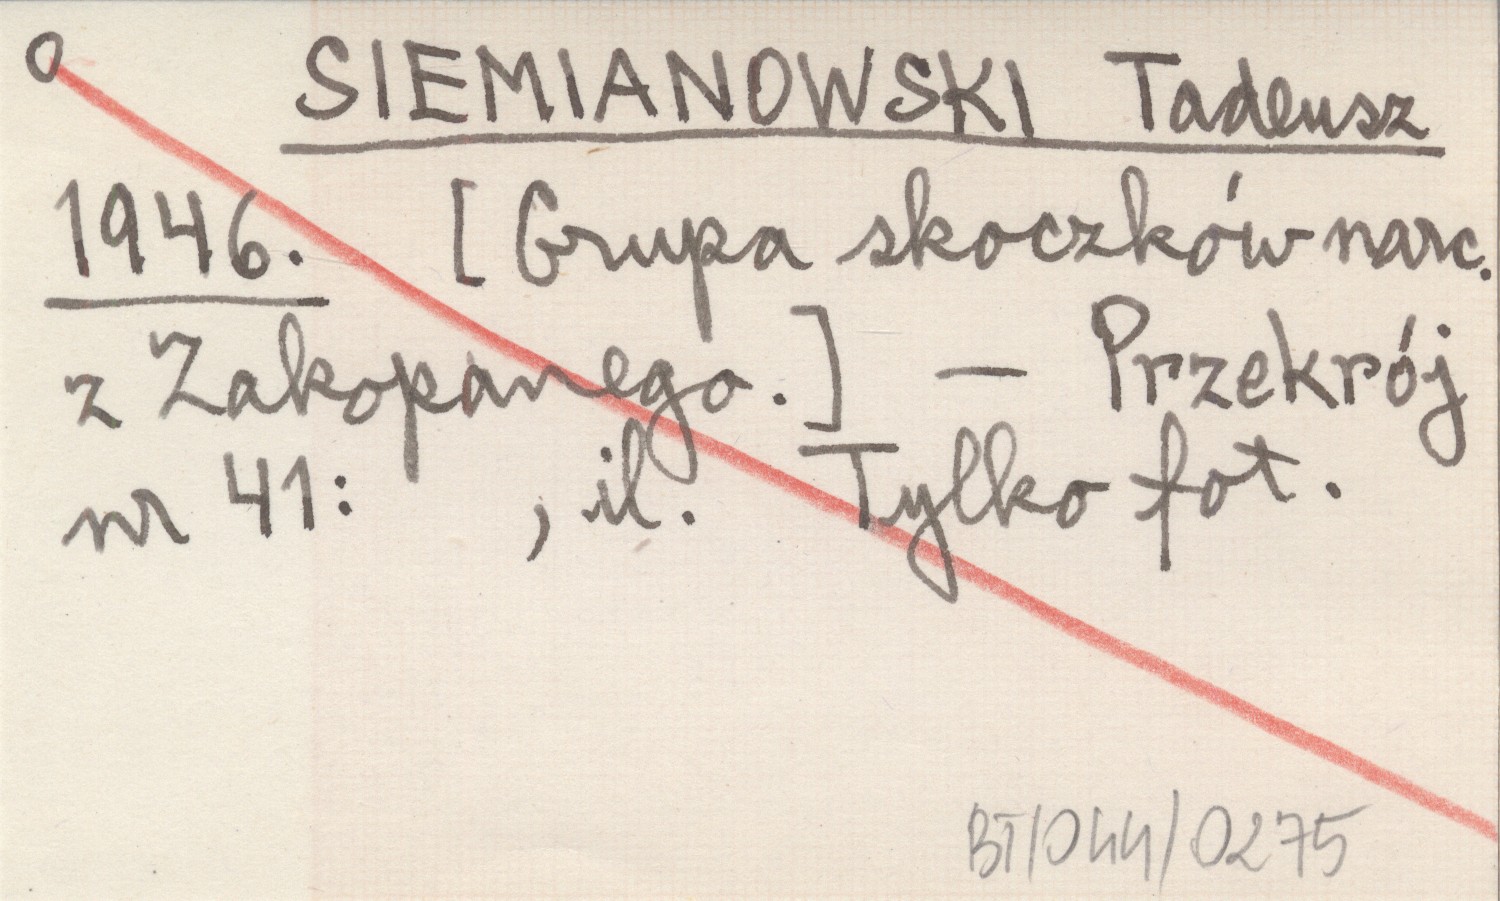 O SIEMIANOWSKI Tadeusz
1946. [Grupa skoczków narc.
z Zakopanego.] — Przekrój
nr 41: , il. Tylko fot.
BT/044/0275